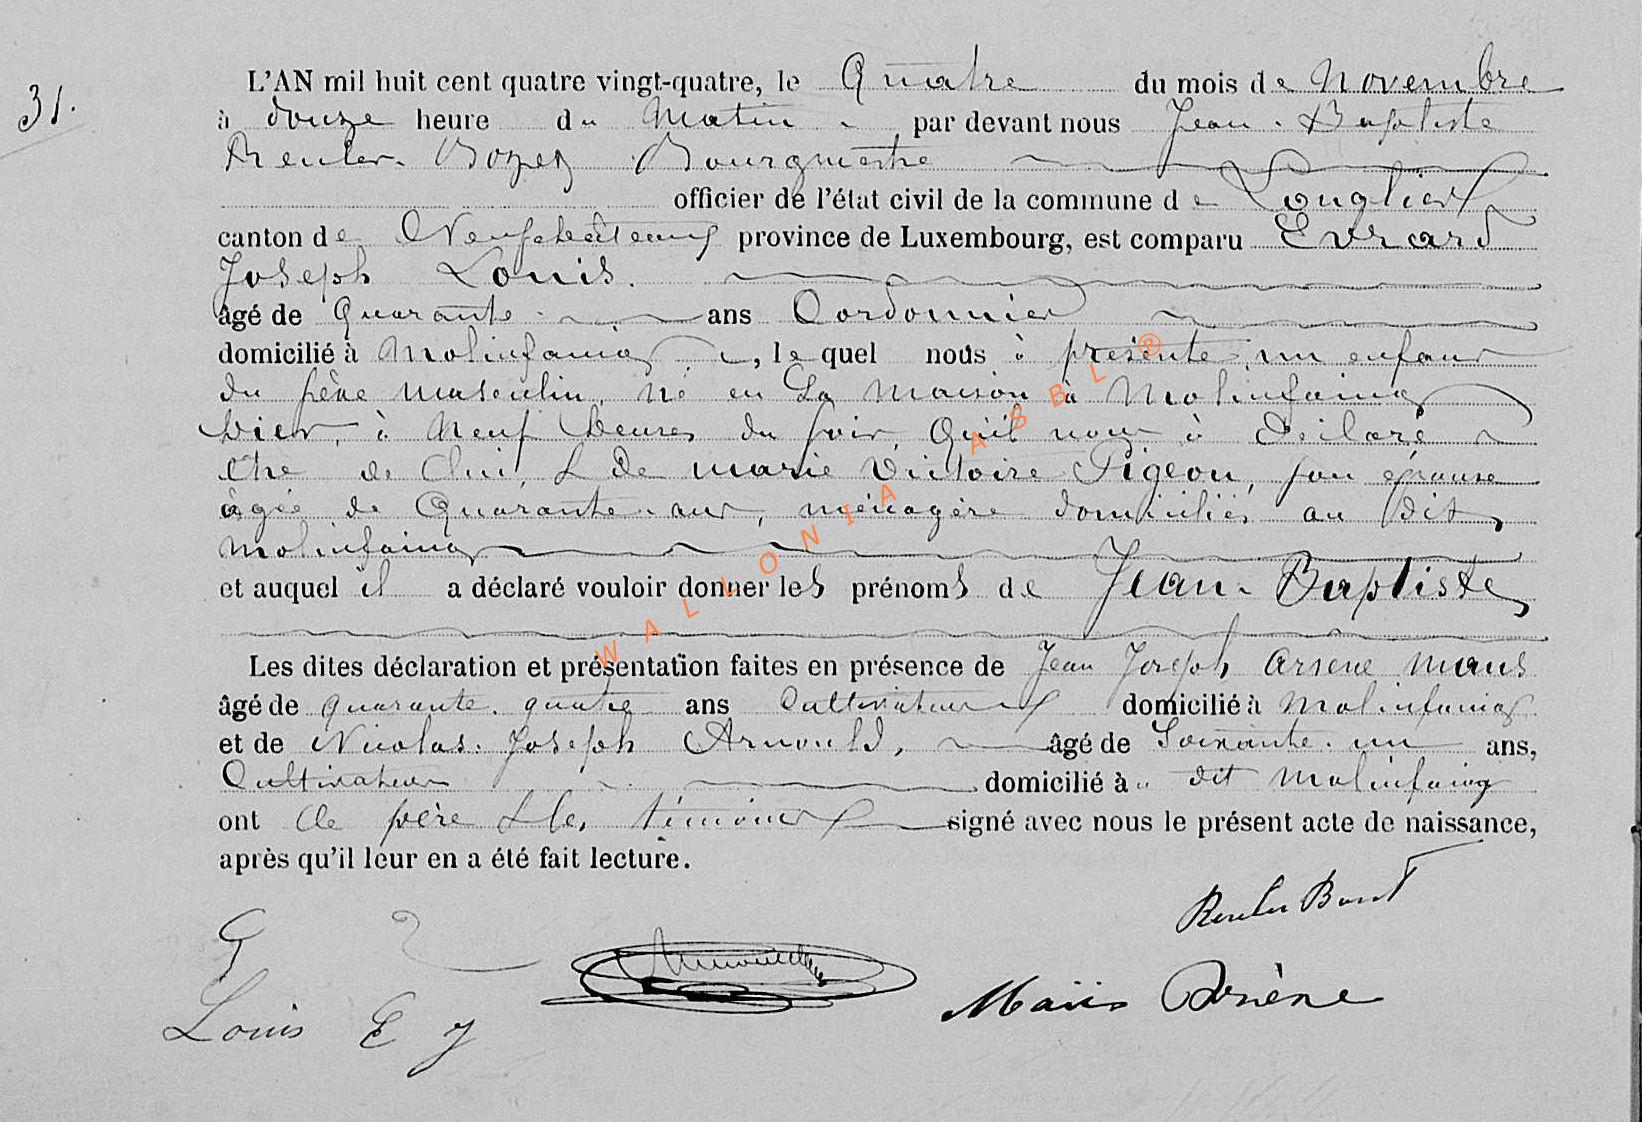 31.
L'AN mil huit cent quatre vingt-quatre, le Quatre du mois de Novembre
à douze heure du Matin, par devant nous Jean-Baptiste
Reuler-Bozet Bourgmestre
officier de l'état civil de la commune de Longlier
canton de Neufchâteau province de Luxembourg, est comparu Evrard
Joseph Louis.
âgé de Quarante ans Cordonnier
domicilié à Molinfaing, le quel nous à présenté un enfant
du sexe masculin, né en sa maison à Molinfaing
hier, à Neuf heures du soir, Qu'il nous à Déclaré
être de lui, & De marie Victoire Pigeon, son épouse
âgée de Quarante ans, ménagère domiciliés au dit
Molinfaing
et auquel il a déclaré vouloir donner les prénoms de Jean-Baptiste
Les dites déclaration et présentation faites en présence de Jean Joseph Arsène Maus
âgé de quarante-quatre ans Cultivateur domicilié à Molinfaing
et de Nicolas-Joseph Arnould, âgé de Soixante-un ans,
Cultivateur domicilié au dit Molinfaing
ont le père & les témoins signé avec nous le présent acte de naissance,
après qu'il leur en a été fait lecture.
Arsène
Louis E J
WALLONIA ASBL ®